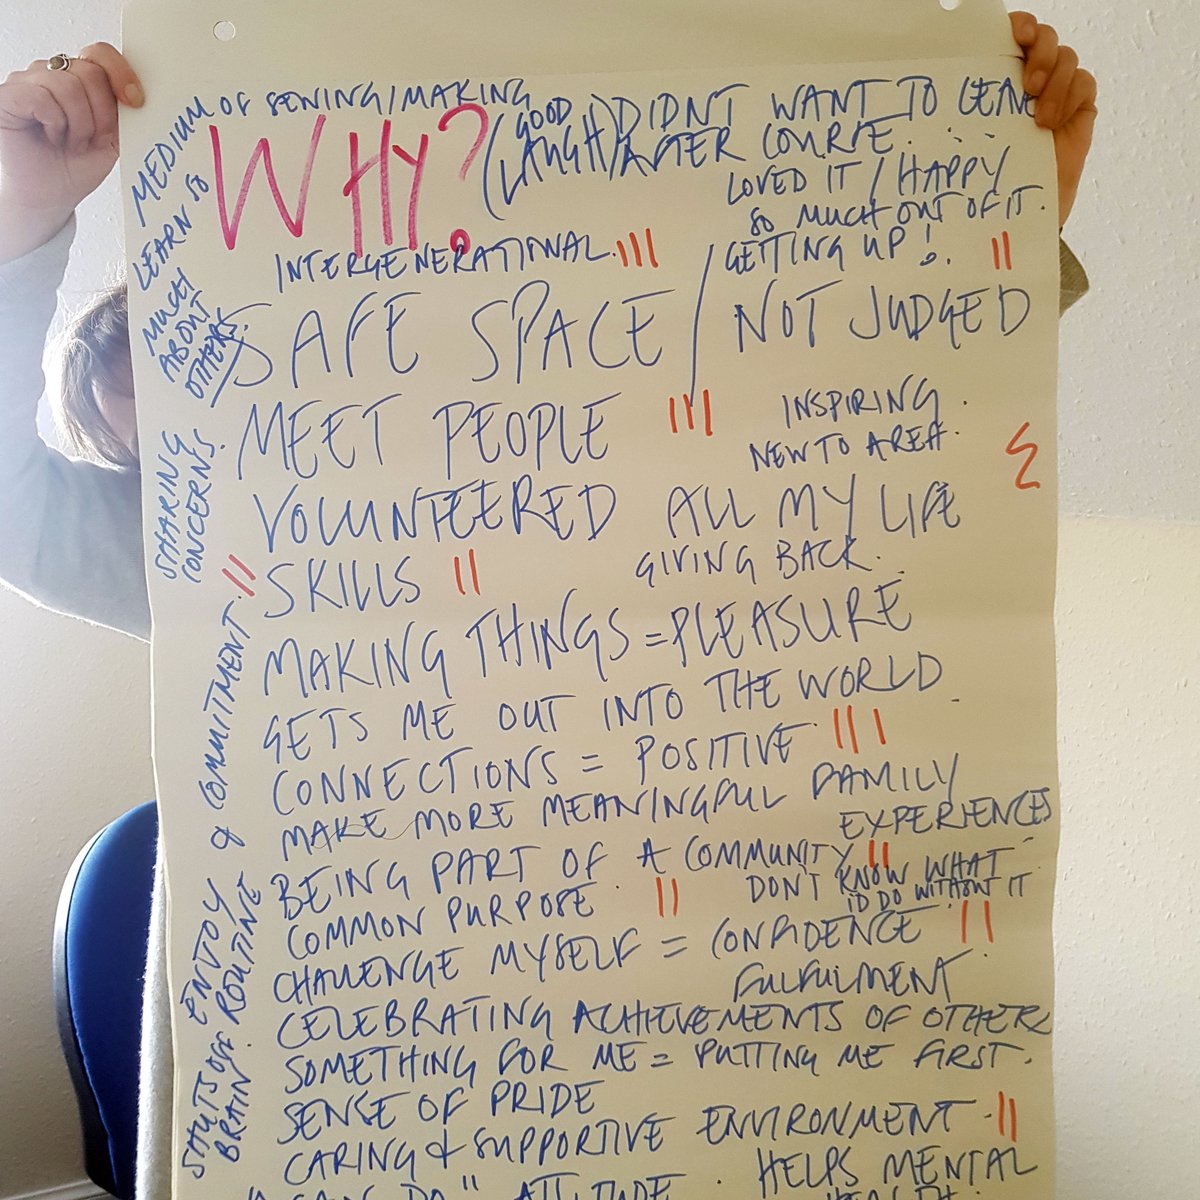 MEDIUM OF SEWING/MAKING
WHY?
(GOOD LAUGH)
DIDNT WANT TO LEAVE
AFTER COURSE...
LOVED IT / HAPPY
SO MUCH OUT OF IT.
GETTING UP!
LEARN SO
MUCH
ABOUT
OTHERS.
INTERGENERATIONAL.
SAFE SPACE / NOT JUDGED
MEET PEOPLE
INSPIRING.
NEW TO AREA.
SHARING
CONCERNS.
VOLUNTEERED ALL MY LIFE
GIVING BACK.
SKILLS
MAKING THINGS = PLEASURE
GETS ME OUT INTO THE WORLD.
CONNECTIONS = POSITIVE
MAKE MORE MEANINGFUL FAMILY
EXPERIENCES
BEING PART OF A COMMUNITY
COMMON PURPOSE
DON'T KNOW WHAT
ID DO WITHOUT IT
CHALLENGE MYSELF = CONFIDENCE
FULFULMENT
CELEBRATING ACHIEVEMENTS OF OTHERS
SOMETHING FOR ME = PUTTING ME FIRST.
SENSE OF PRIDE
CARING & SUPPORTIVE ENVIRONMENT
ENJOY ROUTINE & COMMITMENT.
SHUTS OFF
BRAIN.
"CAN DO" ATTITUDE.
HELPS MENTAL
HEALTH.